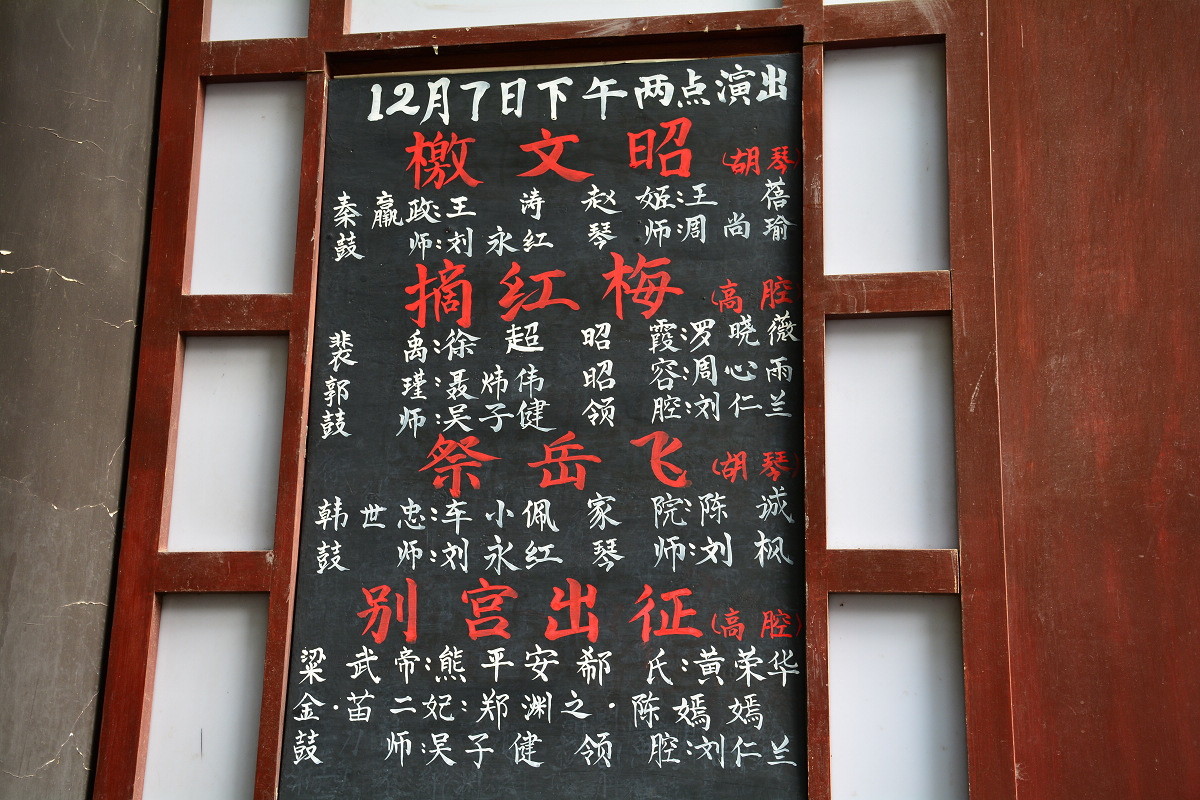 12月7日下午两点演出
檄文昭(胡琴)
秦嬴政:王涛 赵姬:王蓓
鼓师:刘永红 琴师:周尚瑜
摘红梅(高腔)
裴禹:徐超 昭霞:罗晓薇
郭瑾:聂炜伟 昭容:周心雨
鼓师:吴子健 领腔:刘仁兰
祭岳飞(胡琴)
韩世忠:车小佩 家院:陈诚
鼓师:刘永红 琴师:刘枫
别宫出征(高腔)
梁武帝:熊平安 郗氏:黄荣华
金·苗二妃:郑渊之·陈嫣嫣
鼓师:吴子健 领腔:刘仁兰